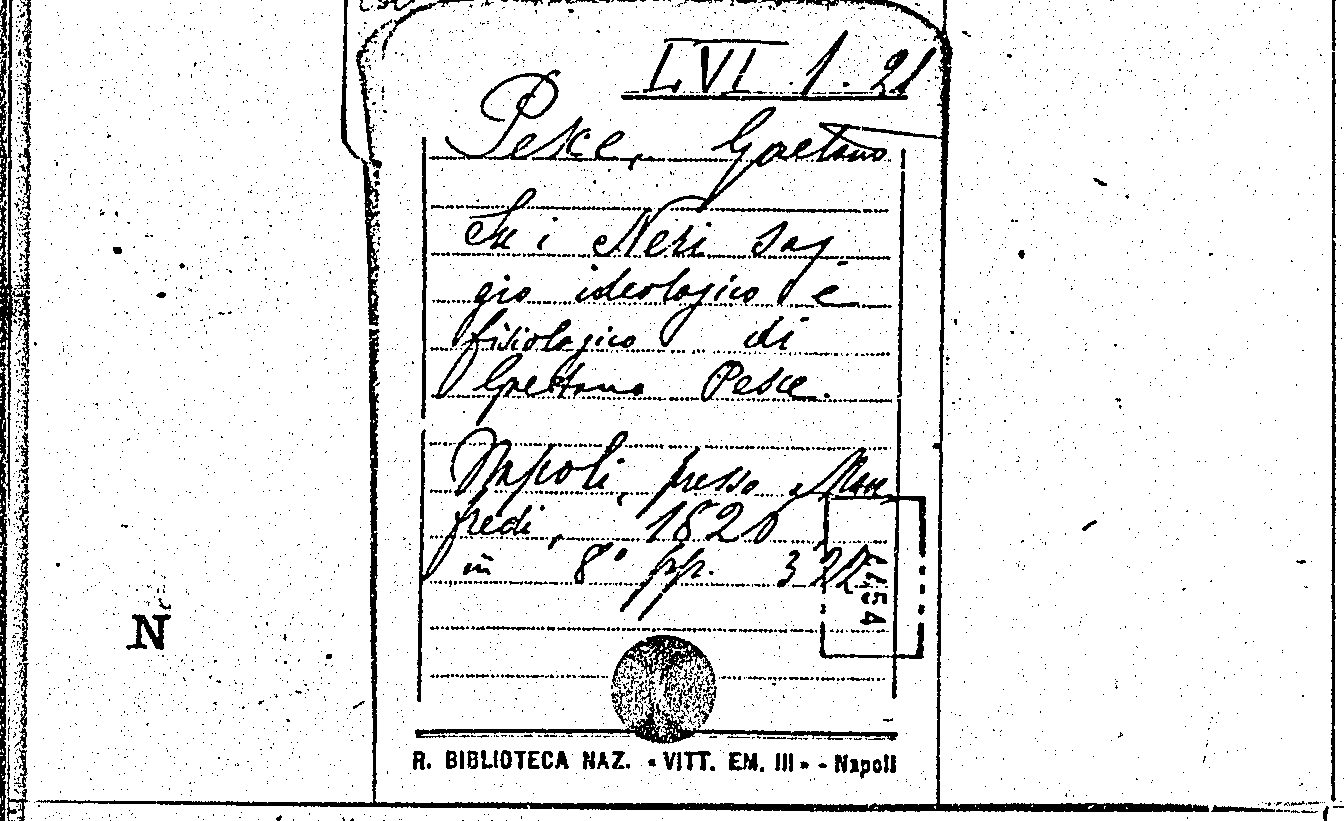 LVI 1. 21
Pesce, Gaetano
Su i Neri sag
gio ideologico e
fisiologico di
Gaetano Pesce.
Napoli, presso Man
fredi, 1820
in 8° pp. 322
N
R. BIBLIOTECA NAZ. «VITT. EM. III» - Napoli